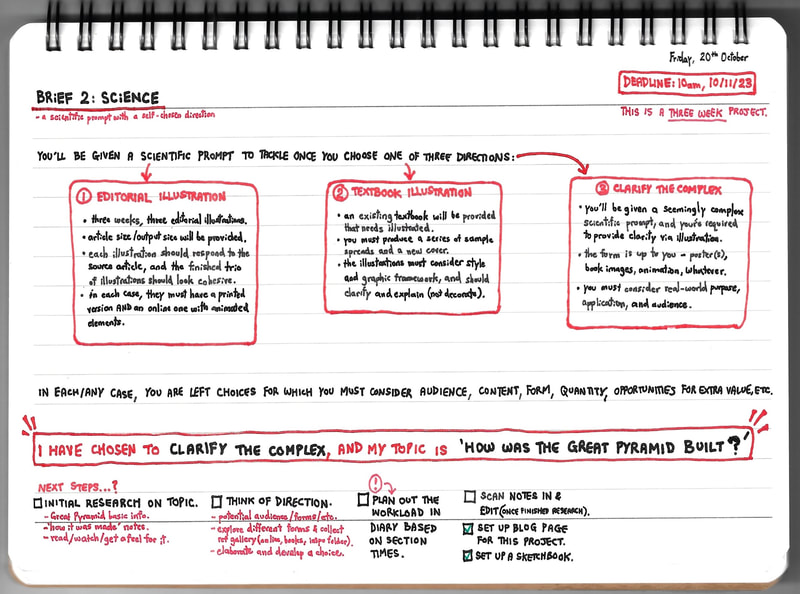 Friday, 20th October
DEADLINE: 10am, 10/11/23
BRIEF 2: SCIENCE
- a scientific prompt with a self-chosen direction
THIS IS A THREE WEEK PROJECT.
YOU'LL BE GIVEN A SCIENTIFIC PROMPT TO TACKLE ONCE YOU CHOOSE ONE OF THREE DIRECTIONS:
① EDITORIAL ILLUSTRATION
• three weeks, three editorial illustrations.
• article size/output size will be provided.
• each illustration should respond to the
source article, and the finished trio
of illustrations should look cohesive.
• in each case, they must have a printed
version AND an online one with animated
elements.
② TEXTBOOK ILLUSTRATION
• an existing textbook will be provided
that needs illustrated.
• you must produce a series of sample
spreads and a new cover.
• the illustrations must consider style
and graphic framework, and should
clarify and explain (not decorate).
③ CLARIFY THE COMPLEX
• you'll be given a seemingly complex
scientific prompt, and you're required
to provide clarity via illustration.
• the form is up to you - poster(s),
book images, animation, whatever.
• you must consider real-world purpose,
application, and audience.
IN EACH/ANY CASE, YOU ARE LEFT CHOICES FOR WHICH YOU MUST CONSIDER AUDIENCE, CONTENT, FORM, QUANTITY, OPPORTUNITIES FOR EXTRA VALUE, ETC.
I HAVE CHOSEN TO CLARIFY THE COMPLEX, AND MY TOPIC IS 'HOW WAS THE GREAT PYRAMID BUILT?'
NEXT STEPS...?
INITIAL RESEARCH ON TOPIC.
- Great Pyramid basic info.
- 'how it was made' notes.
- read/watch/get a feel for it.
THINK OF DIRECTION.
- potential audience/forms/etc.
- explore different forms & collect
ref gallery (online, books, inspo folder).
- elaborate and develop a choice.
!
PLAN OUT THE
WORKLOAD IN
DIARY BASED
ON SECTION
TIMES.
SCAN NOTES IN &
EDIT (ONCE FINISHED RESEARCH).
SET UP BLOG PAGE
FOR THIS PROJECT.
SET UP A SKETCHBOOK.